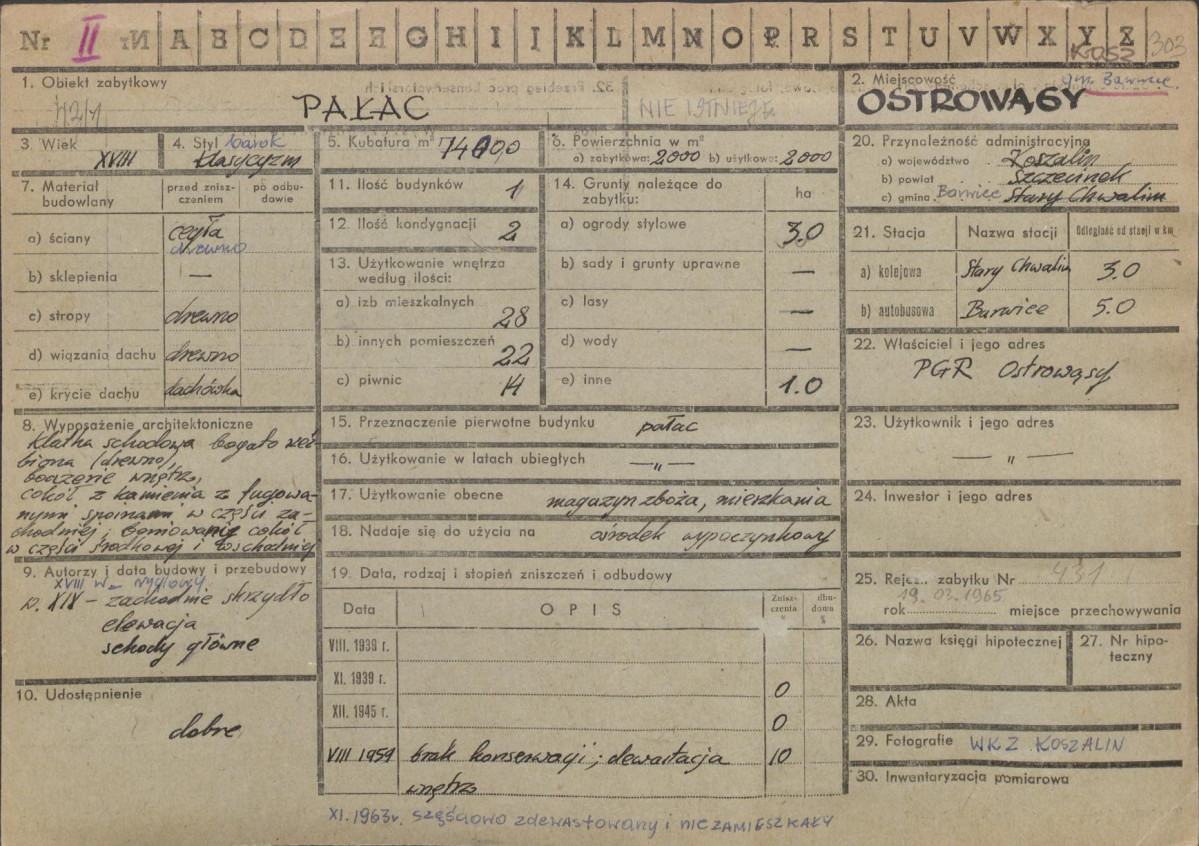 Nr II A B C D E F G H I J K L M N O P R S T U V W X Y Z 303
KOSZ
1. Obiekt zabytkowy
PAŁAC
NIE ISTNIEJE
2. Miejscowość
gm. Barwice.
OSTROWĄSY
3. Wiek
XVIII
4. Styl barok
klasycyzm
5. Kubatura m³
6. Powierzchnia w m²
a) zabytkowa: 2000 b) użytkowa: 2000
7. Materiał budowlany
przed znisz-
czeniem
po odbu-
dowie
a) ściany cegła
drewno
b) sklepienia —
c) stropy drewno
d) wiązania dachu drewno
e) krycie dachu dachówka
8. Wyposażenie architektoniczne
klatka schodowa bogato rzeź-
biona (drewno),
boazerie wnętrz,
cokół z kamienia z fugowa-
nymi spoinami w części za-
chodniej, boniowanie cokół
w części środkowej i wschodniej
9. Autorzy i data budowy i przebudowy
XVIII w – ryglowy
w. XIX – zachodnie skrzydło
elewacja
schody główne
10. Udostępnienie
dobre
11. Ilość budynków 1
12. Ilość kondygnacji 2
13. Użytkowanie wnętrza
według ilości:
a) izb mieszkalnych
28
b) innych pomieszczeń
22
c) piwnic 14
14. Grunty należące do
zabytku: ha
a) ogrody stylowe 3.0
b) sady i grunty uprawne —
c) lasy —
d) wody —
e) inne 1.0
15. Przeznaczenie pierwotne budynku pałac
16. Użytkowanie w latach ubiegłych — „ —
17. Użytkowanie obecne magazyn zboża, mieszkania
18. Nadaje się do użycia na ośrodek wypoczynkowy
19. Data, rodzaj i stopień zniszczeń i odbudowy
Data OPIS Znisz-
czenia
%
dbu-
dowa
%
VIII. 1939 r.
XI. 1939 r. 0
XII. 1945 r. 0
VIII 1959 brak konserwacji; dewastacja 10
wnętrz
XI. 1963 r. częściowo zdewastowany i niezamieszkały
20. Przynależność administracyjna
a) województwo Koszalin
b) powiat Szczecinek
c) gmina Barwice Stary Chwalim
21. Stacja Nazwa stacji Odległość od stacji w km
a) kolejowa Stary Chwalim 3.0
b) autobusowa Barwice 5.0
22. Właściciel i jego adres
PGR Ostrowąsy
23. Użytkownik i jego adres
— „ —
24. Inwestor i jego adres
25. Rejestr zabytku Nr 431
19. 03. 1965
rok miejsce przechowywania
26. Nazwa księgi hipotecznej
27. Nr hipo-
teczny
28. Akta
29. Fotografie WKZ KOSZALIN
30. Inwentaryzacja pomiarowa